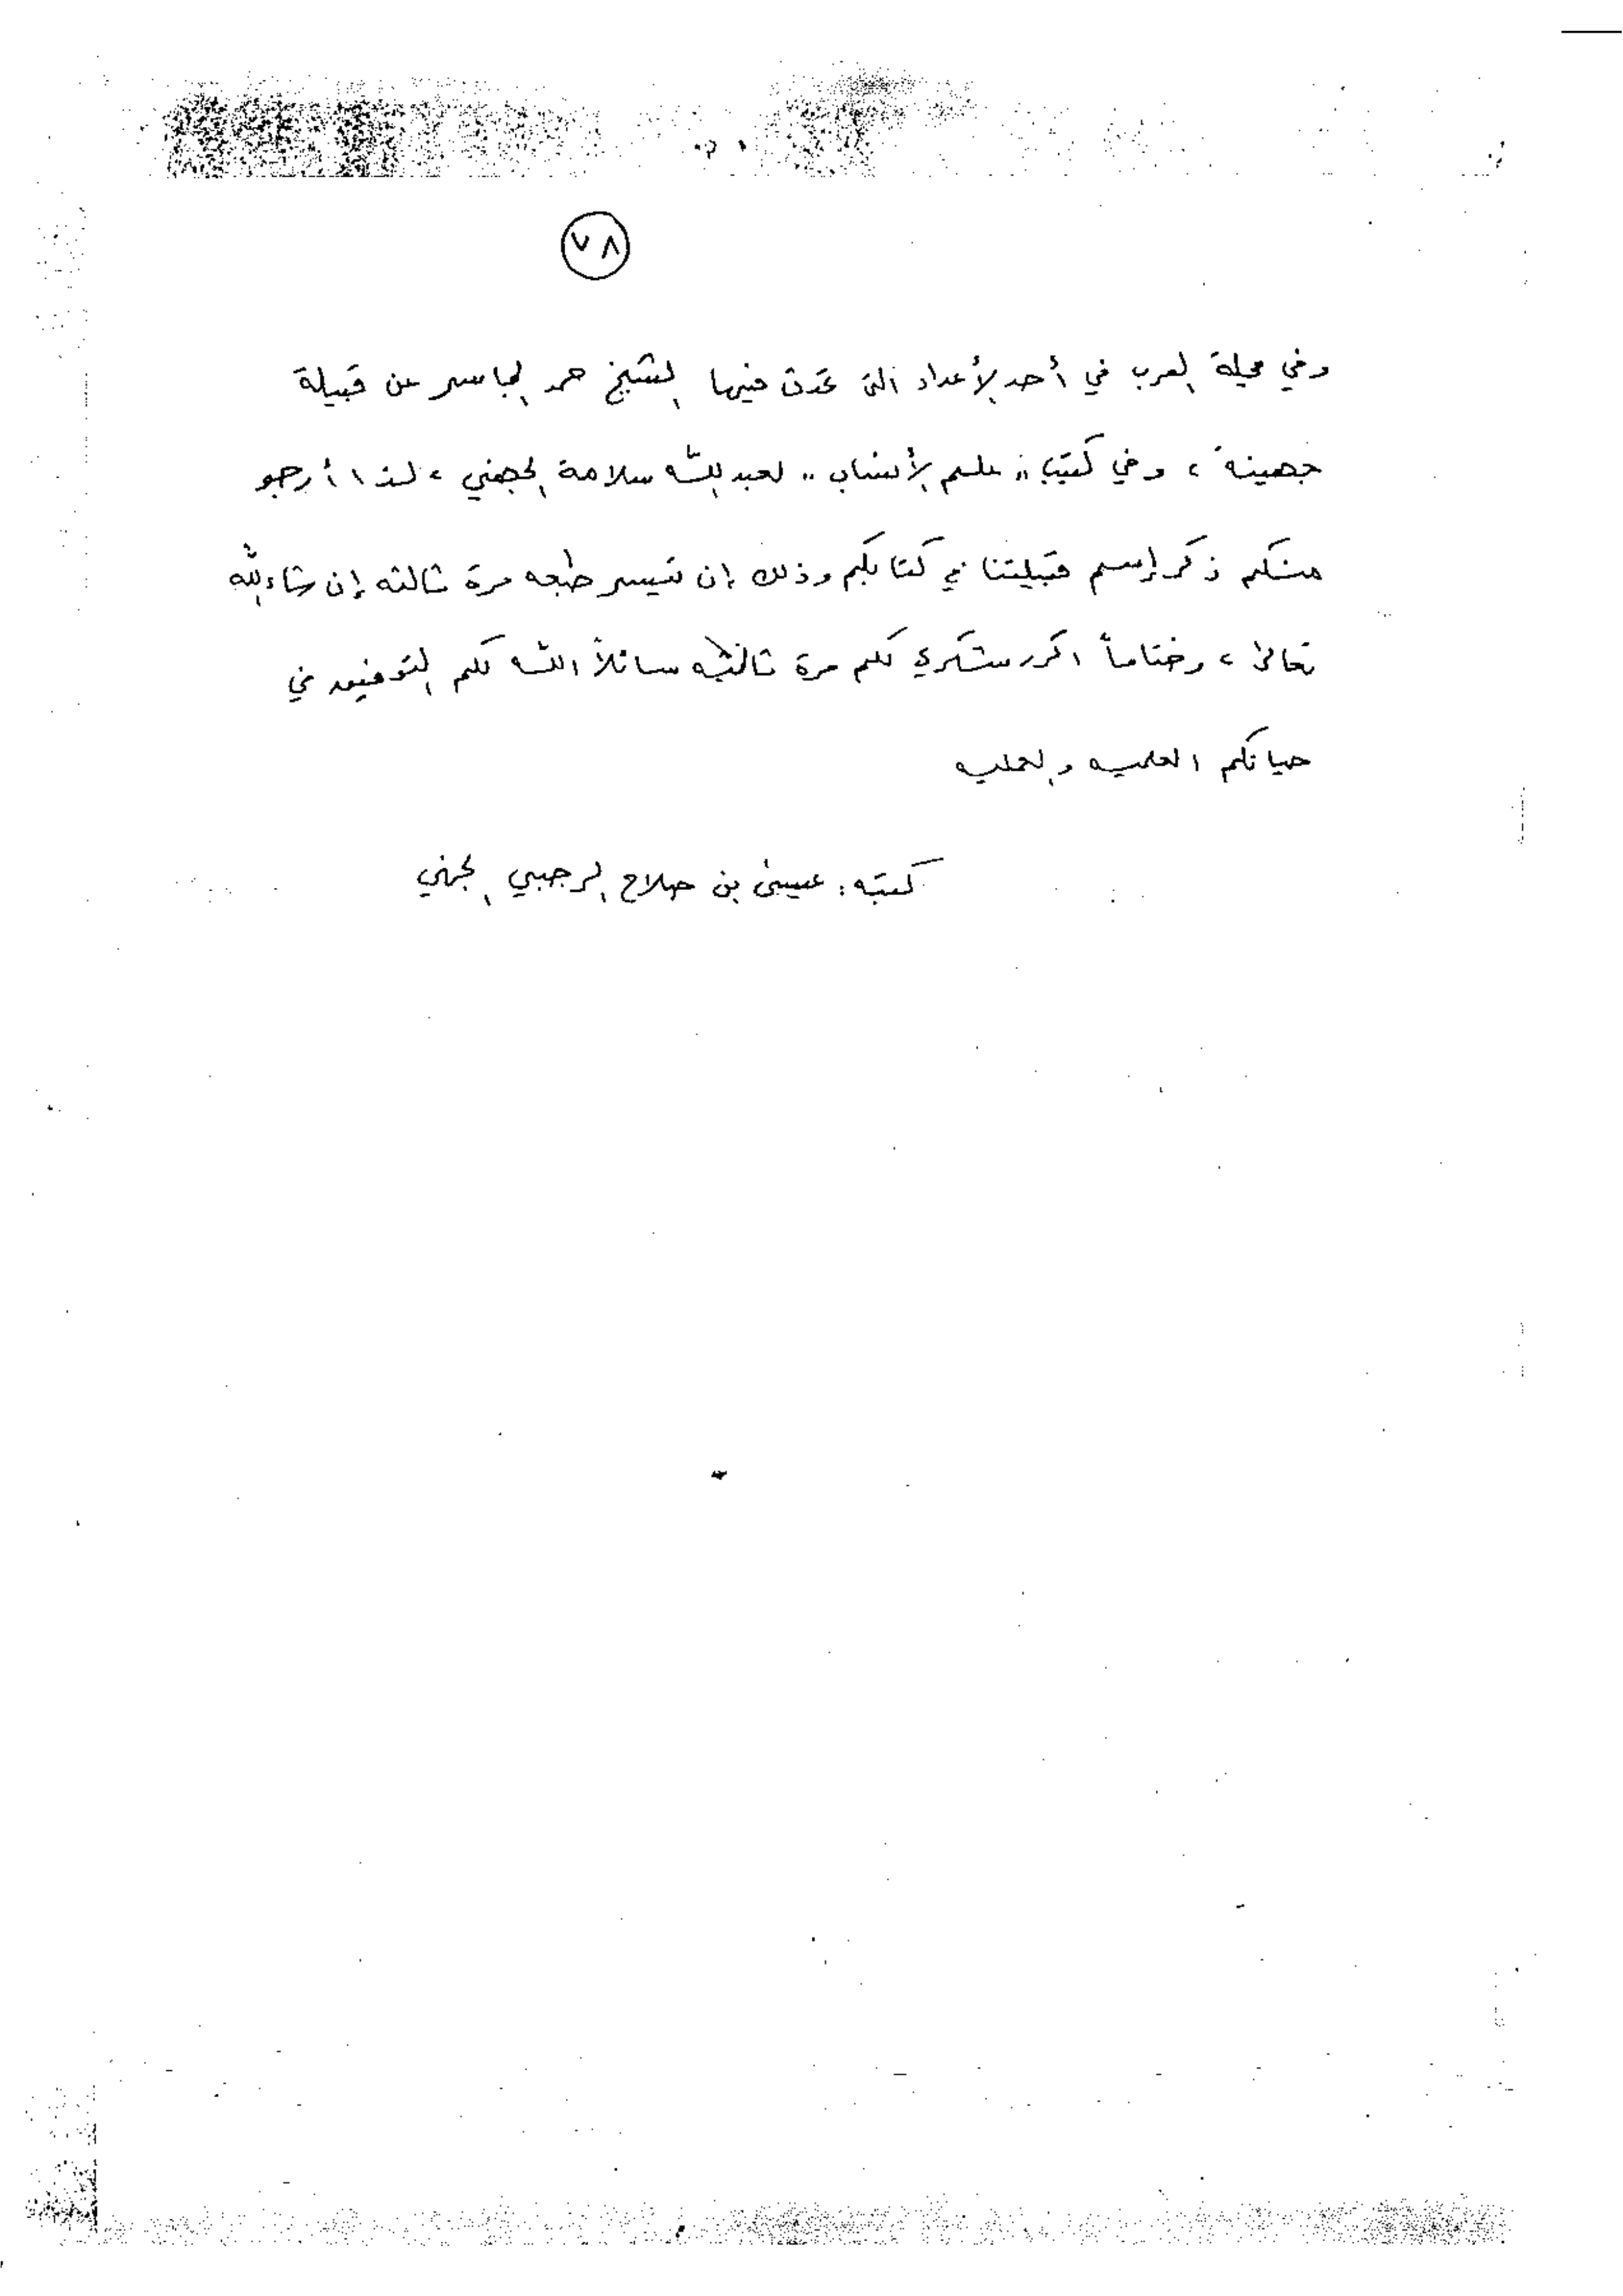 ٧٨
وفي مجلة العرب في أحد الأعداد التي تحدث فيها الشيخ حمد الجاسر عن قبيلة
جهينة ، وفي كتيب " علم الأنساب " لعبد الله سلامة الجهني ، لذا أرجو
منكم ذكر إسم قبيلتنا في كتابكم وذلك إن تيسر طبعه مرة ثالثه إن شاء الله
تعالى ، وختاماً اكرر شكري لكم مرة ثالثه سائلاً الله لكم التوفيق في
حياتكم العلميه والعمليه
كتبه : عيسى بن صلاح الرجبي الجهني